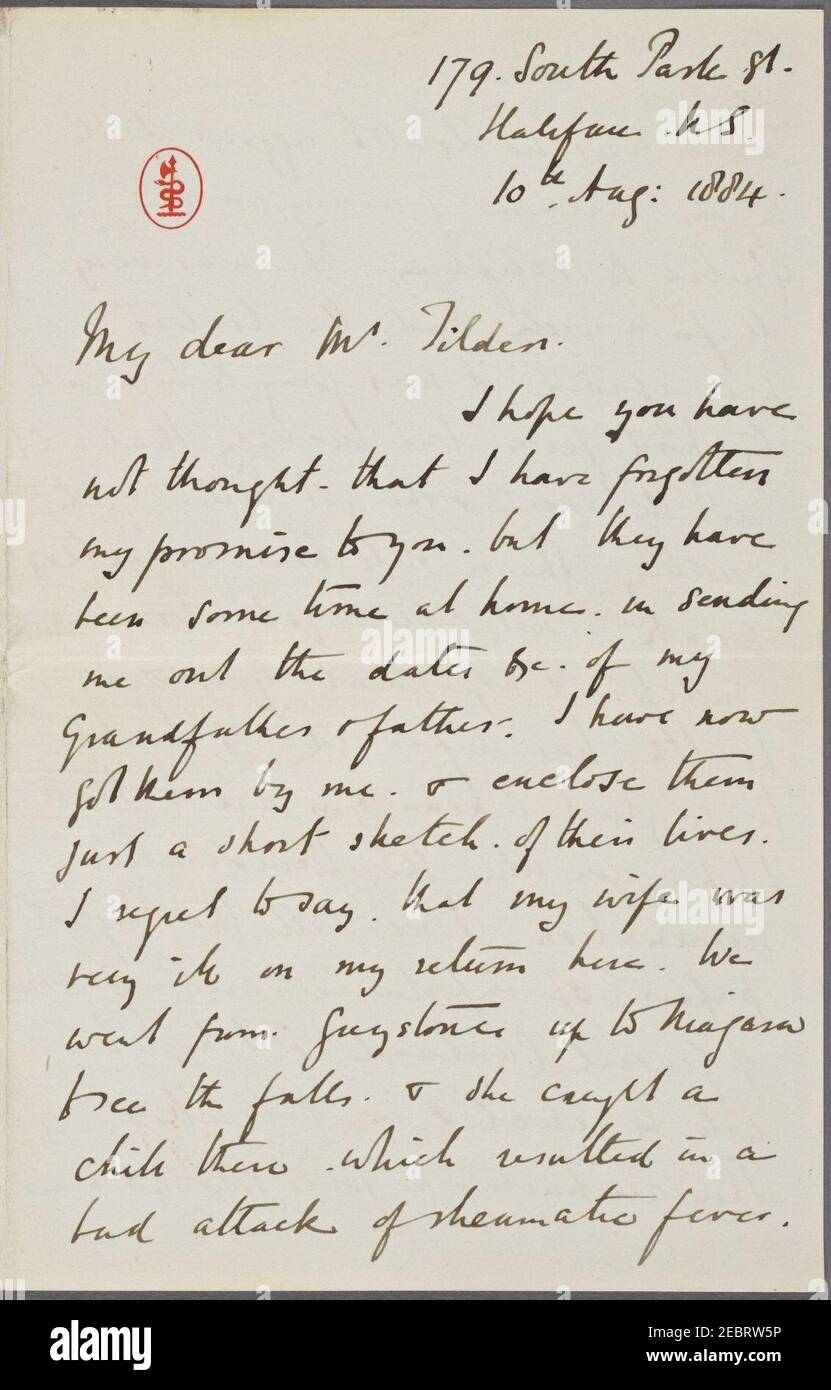 179. South Park St.
Halifax N.S.
10th Aug: 1884.
My dear Mr. Tilden.
I hope you have
not thought - that I have forgotten
my promise to you. but they have
been some time at home. in sending
me out the dates &c. of my
Grandfather & father. I have now
got them by me. & enclose them
just a short sketch. of their lives.
I regret to say. that my wife was
very ill on my return here. We
went from Greystone up to Niagara
to see the falls. & she caught a
chill there. which resulted in a
bad attack of rheumatic fever.
alamy
Image ID: 2EBRW5P
www.alamy.com